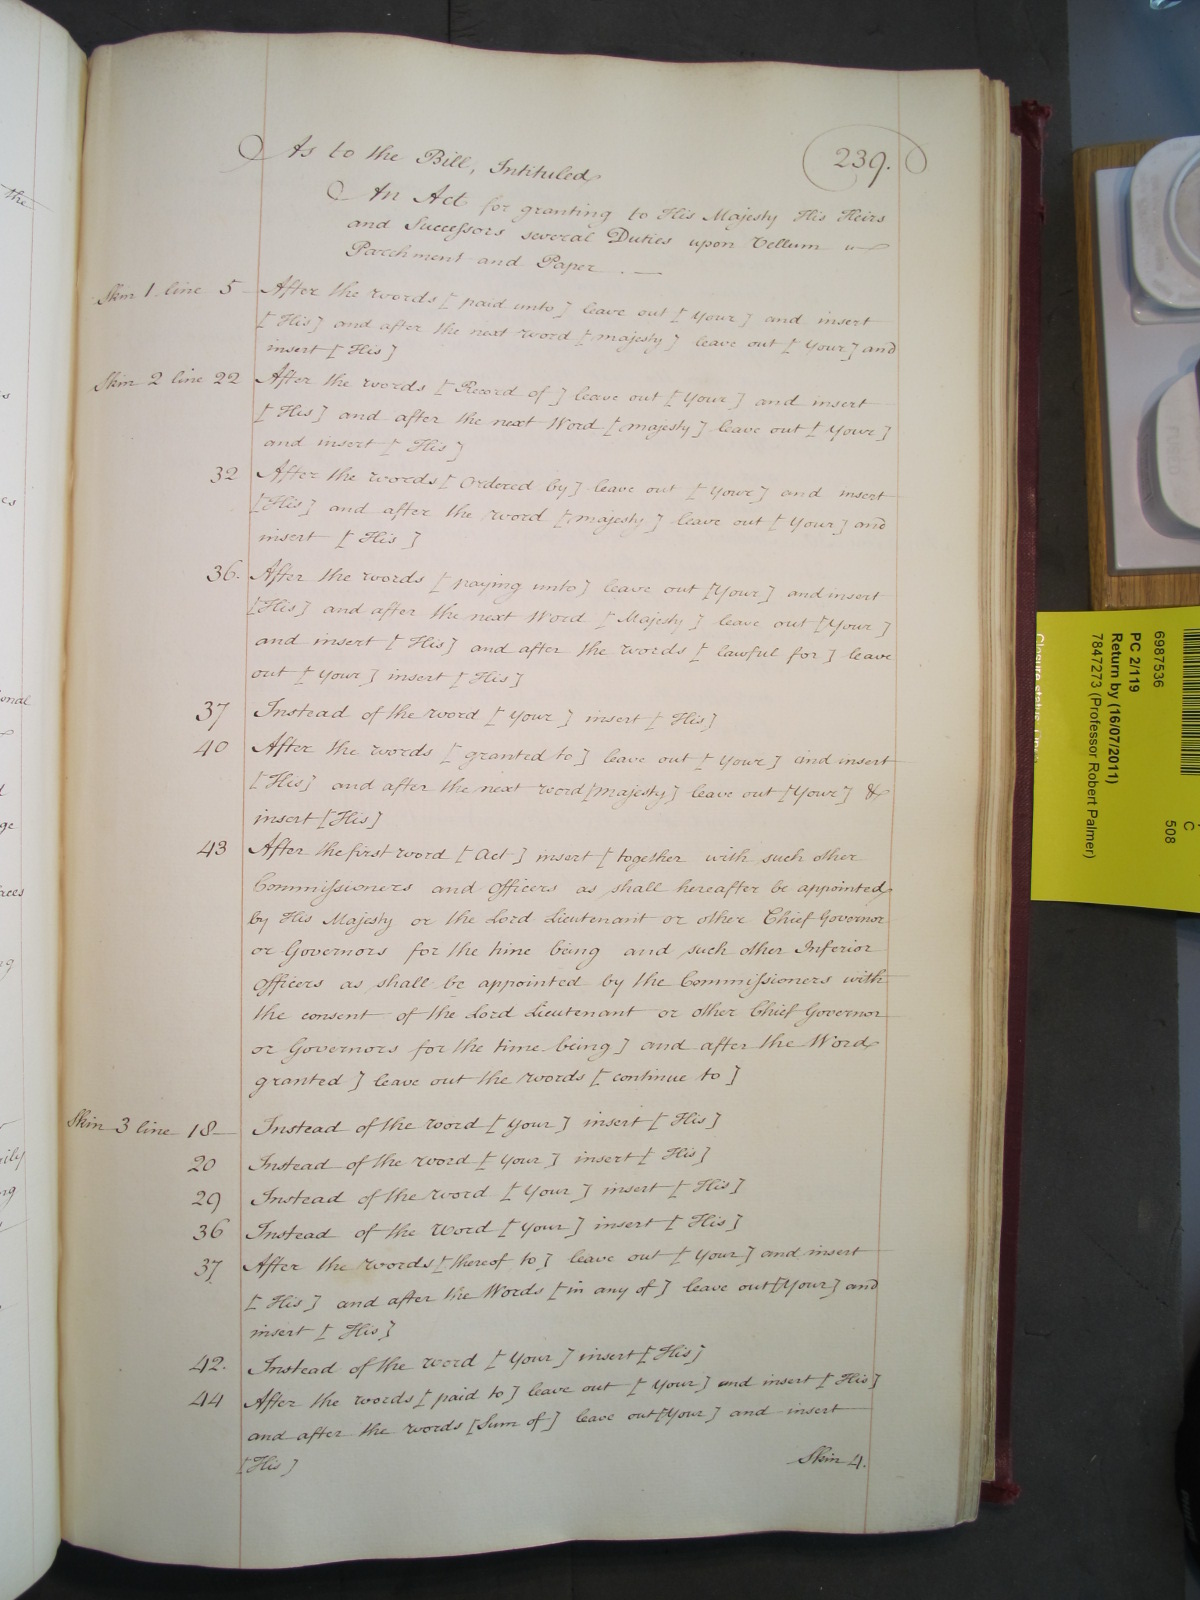 239.
As to the Bill, Intituled
An Act for granting to His Majesty His Heirs
and Successors several Duties upon Vellum
Parchment and Paper. —
Skin 1 line 5 After the words [ paid unto ] leave out [ Your ] and insert
[ His ] and after the next word [ majesty ] leave out [ Your ] and
insert [ His ]
Skin 2 line 22 After the words [ Record of ] leave out [ Your ] and insert
[ His ] and after the next Word [ majesty ] leave out [ Your ]
and insert [ His ]
32 After the words [ Ordered by ] leave out [ Your ] and insert
[ His ] and after the word [ majesty ] leave out [ Your ] and
insert [ His ]
36. After the words [ paying unto ] leave out [ Your ] and insert
[ His ] and after the next Word [ Majesty ] leave out [ Your ]
and insert [ His ] and after the words [ lawful for ] leave
out [ Your ] insert [ His ]
37 Instead of the word [ Your ] insert [ His ]
40 After the words [ granted to ] leave out [ Your ] and insert
[ His ] and after the next word [ majesty ] leave out [ Your ] &
insert [ His ]
43 After the first word [ Act ] insert [ together with such other
Commissioners and Officers as shall hereafter be appointed
by His Majesty or the Lord Lieutenant or other Chief Governor
or Governors for the time being and such other Inferior
Officers as shall be appointed by the Commissioners with
the consent of the Lord Lieutenant or other Chief Governor
or Governors for the time being ] and after the Word
granted ] leave out the words [ continue to ]
Skin 3 line 18 Instead of the word [ Your ] insert [ His ]
20 Instead of the word [ Your ] insert [ His ]
29 Instead of the word [ Your ] insert [ His ]
36 Instead of the Word [ Your ] insert [ His ]
37 After the words [ thereof to ] leave out [ Your ] and insert
[ His ] and after the Words [ in any of ] leave out [ Your ] and
insert [ His ]
42. Instead of the word [ Your ] insert [ His ]
44 After the words [ paid to ] leave out [ Your ] and insert [ His ]
and after the words [ Sum of ] leave out [ Your ] and insert
[ His ]
Skin 4.
the
onal
ge
6987536
PC 2/119
Return by (16/07/2011)
7847273 (Professor Robert Palmer)
C
508